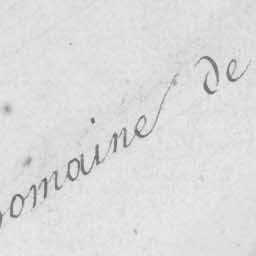 romaine de